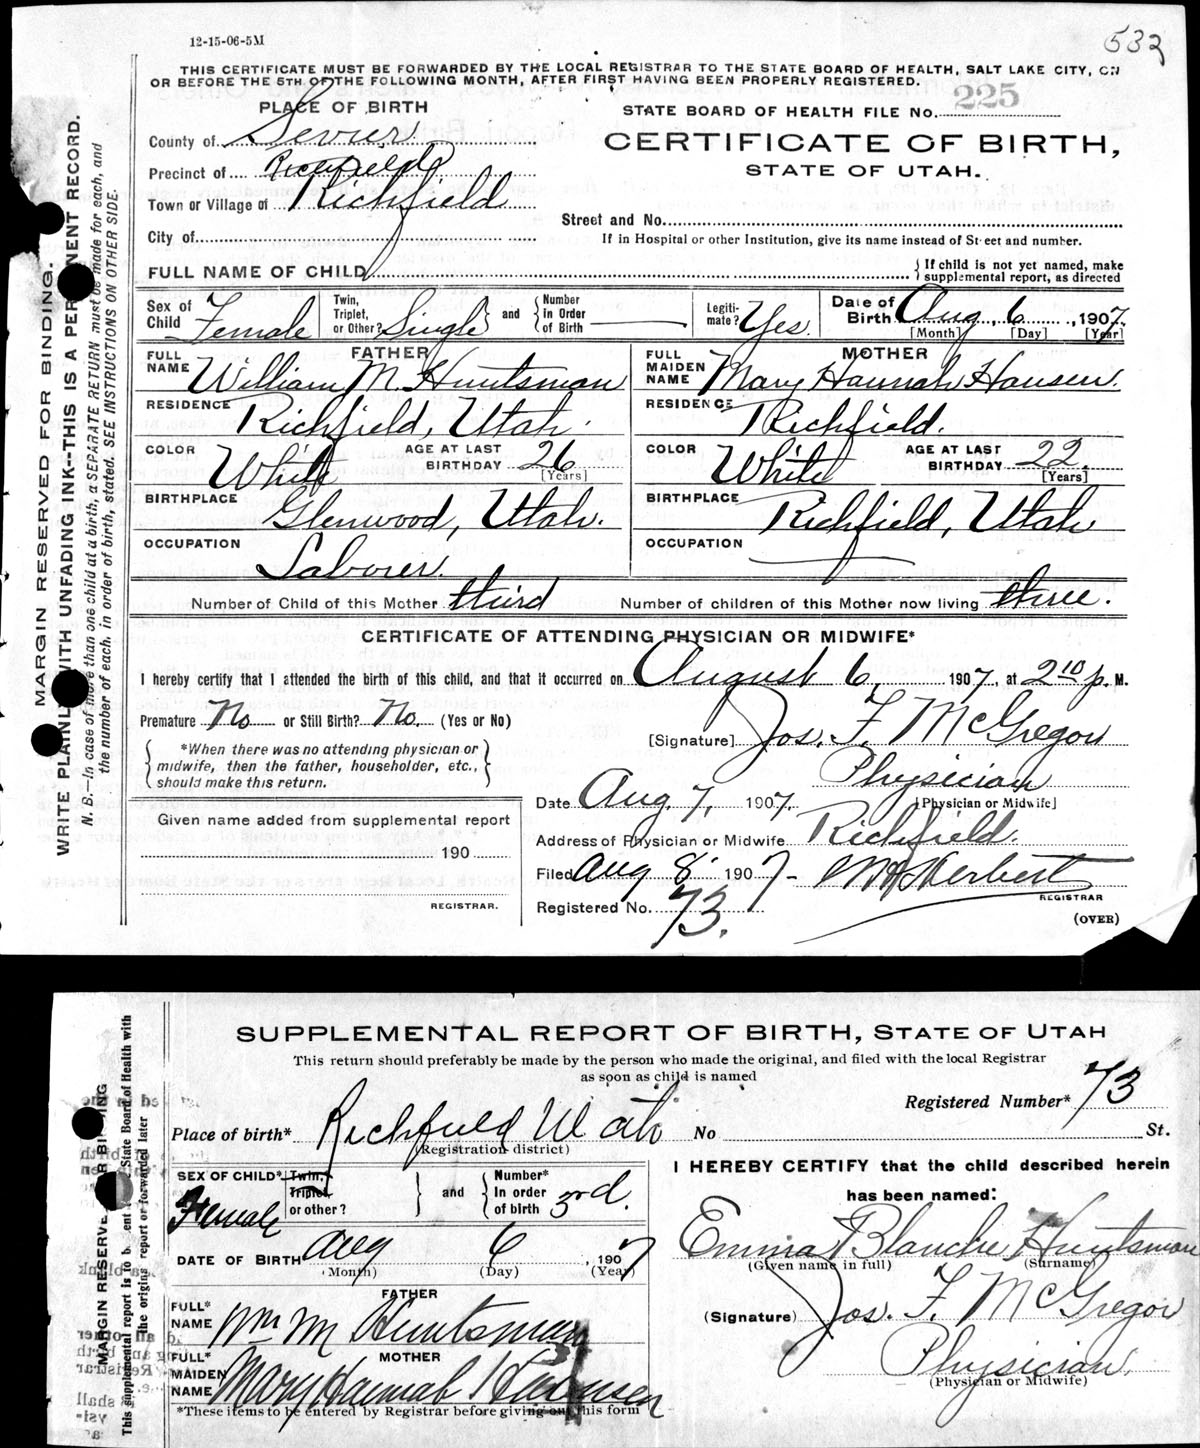 12-15-06-5M
532
THIS CERTIFICATE MUST BE FORWARDED BY THE LOCAL REGISTRAR TO THE STATE BOARD OF HEALTH, SALT LAKE CITY, ON
OR BEFORE THE 5TH OF THE FOLLOWING MONTH, AFTER FIRST HAVING BEEN PROPERLY REGISTERED.
PLACE OF BIRTH
STATE BOARD OF HEALTH FILE No. 225
County of Sevier
CERTIFICATE OF BIRTH,
Precinct of Richfield
STATE OF UTAH.
Town or Village of Richfield
Street and No.
City of
If in Hospital or other Institution, give its name instead of Street and number.
FULL NAME OF CHILD
If child is not yet named, make
supplemental report, as directed
Sex of Child Female
Twin, Triplet, or Other? Single and Number in Order of Birth
Legiti-mate? Yes
Date of Birth Aug 6, 1907
[Month] [Day] [Year]
FATHER
FULL NAME William M. Huntsman
RESIDENCE Richfield, Utah.
COLOR White AGE AT LAST BIRTHDAY 26
[Years]
BIRTHPLACE Glenwood, Utah.
OCCUPATION Laborer.
MOTHER
FULL MAIDEN NAME Mary Hannah Hansen.
RESIDENCE Richfield.
COLOR White AGE AT LAST BIRTHDAY 22.
[Years]
BIRTHPLACE Richfield, Utah
OCCUPATION
Number of Child of this Mother third Number of children of this Mother now living three.
CERTIFICATE OF ATTENDING PHYSICIAN OR MIDWIFE*
I hereby certify that I attended the birth of this child, and that it occurred on August 6, 1907, at 2 10 p. M.
Premature No or Still Birth? No. (Yes or No)
[Signature] Jos. F. McGregor
*When there was no attending physician or
midwife, then the father, householder, etc.,
should make this return.
Physician
[Physician or Midwife]
Date Aug. 7, 1907.
Given name added from supplemental report
190
REGISTRAR.
Address of Physician or Midwife Richfield.
Filed Aug 8 1907- Herbert
REGISTRAR
Registered No. 73.
(OVER)
MARGIN RESERVED FOR BINDING.
WRITE PLAINLY WITH UNFADING INK--THIS IS A PERMANENT RECORD.
N. B.--In case of more than one child at a birth, a SEPARATE RETURN must be made for each, and
the number of each, in order of birth, stated. SEE INSTRUCTIONS ON OTHER SIDE.
SUPPLEMENTAL REPORT OF BIRTH, STATE OF UTAH
This return should preferably be made by the person who made the original, and filed with the local Registrar
as soon as child is named
Registered Number* 73
Place of birth* Richfield Utah No St.
(Registration district)
SEX OF CHILD* Female
Twin, Triplet, or other? and Number* In order of birth 3rd.
DATE OF BIRTH Aug 6, 1907
(Month) (Day) (Year)
FATHER
FULL* NAME Wm M Huntsman
MOTHER
FULL* MAIDEN NAME Mary Hannah Hansen
*These items to be entered by Registrar before giving out this form
I HEREBY CERTIFY that the child described herein
has been named:
Emma Blanche Huntsman
(Given name in full) (Surname)
(Signature) Jos. F. McGregor
Physician.
(Physician or Midwife)
MARGIN RESERVED FOR BINDING
This supplemental report is to be sent to State Board of Health with
the original report or forwarded later